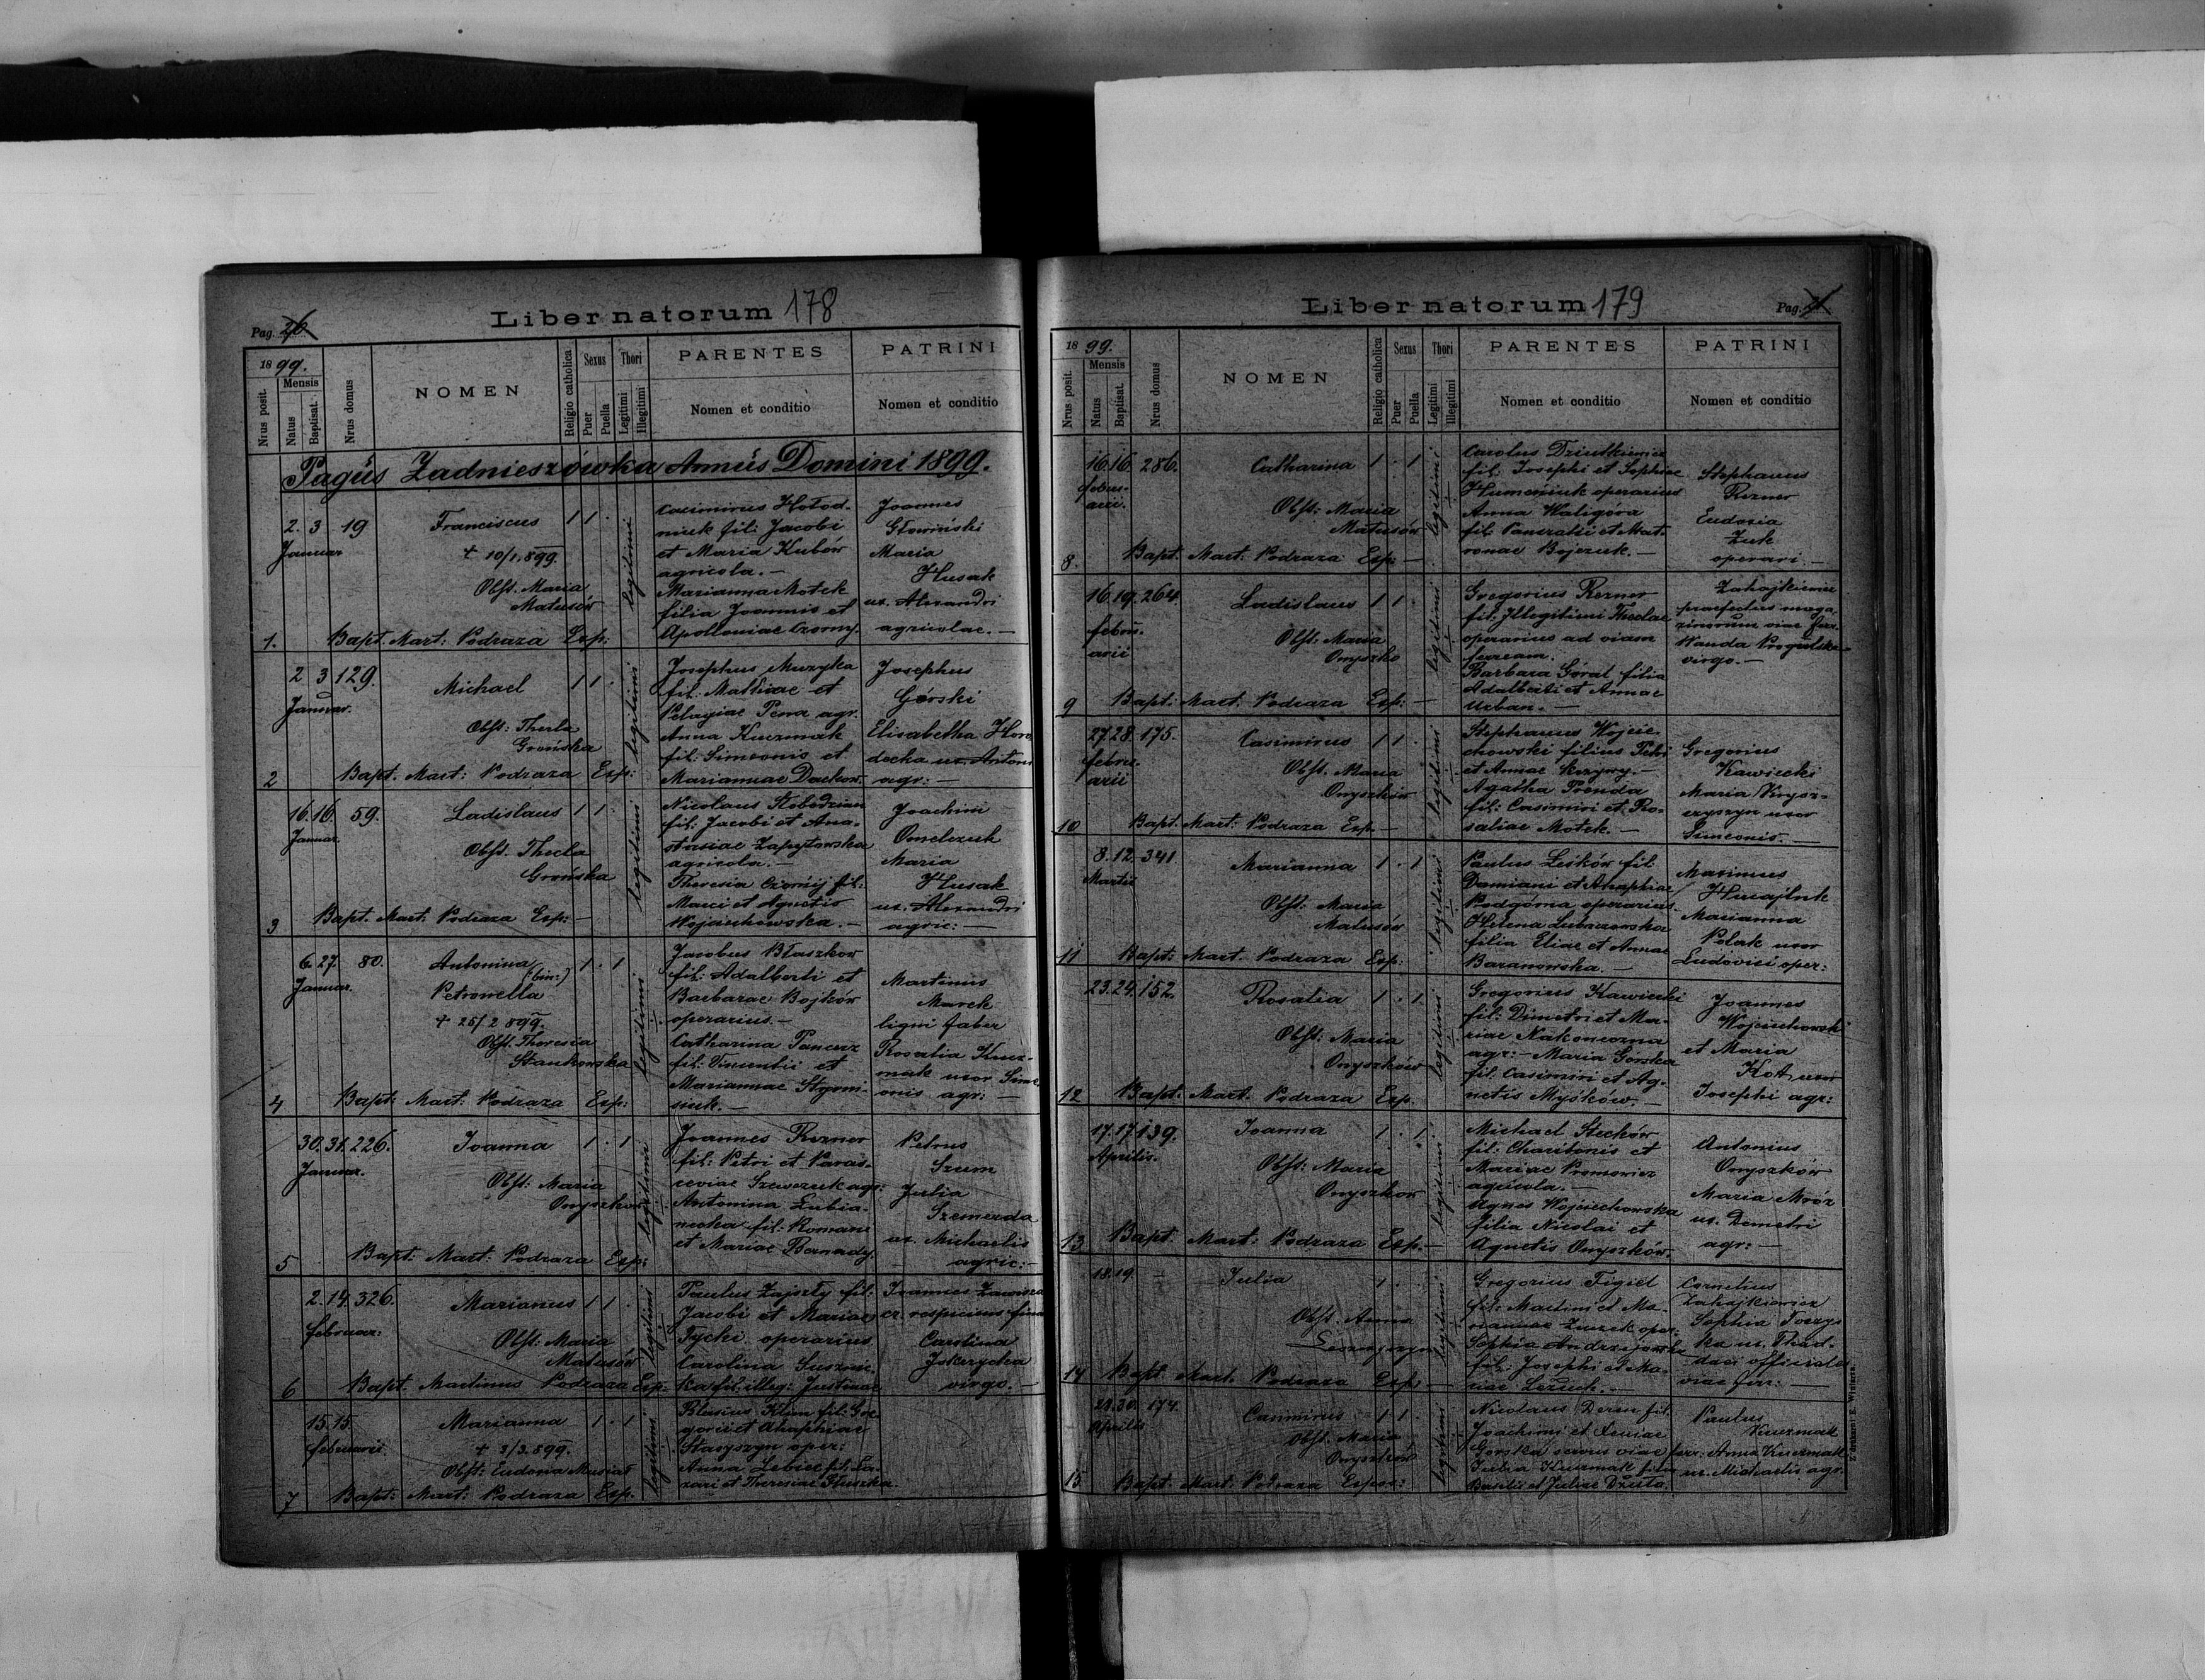 Pag. 26
Liber natorum 178
1899.
Nrus posit.
Mensis
Natus
Baptisat.
Nrus domus
NOMEN
Religio catholica
Sexus
Puer
Puella
Thori
Legitimi
Illegitimi
PARENTES
Nomen et conditio
PATRINI
Nomen et conditio
Pagus Zadnieszówka Annus Domini 1899.
1.
2. 3 19
Januar
Franciscus 1 1
+ 10/1, 899.
Obst. Maria
Matusów
Bapt. Mart: Podraza Exp:
legitimi
Casimirus Hołod-
niuk fil: Jacobi
et Maria Kubów
agricola. —
Marianna Motek
filia Joannis et
Apolloniae Czorny.
Joannes
Głowiński
Maria
Husak
ux. Alexandri
agricolae. —
2
2 3 129.
Januar.
Michael 1 1
Obst: Thecla
Grońska
Bapt. Mart: Podraza Exp:
legitimi
Josephus Muzyka
fil: Mathiae et
Pelagiae Perra agr.
Anna Kuczmak
fil: Simeonis et
Mariannae Dachow.
Josephus
Górski
Elisabetha
docha ux. Antoni
agr: —
3
16. 16. 59.
Januar
Ladislaus 1 1
Obst. Thecla
Grońska
Bapt. Mart: Podraza Exp: —
legitimi
Nicolaus Słobodzian
fil: Jacobi et Ana-
stasiae Zapytowska
agricola. —
Theresia Czornij fil:
Marci et Agnetis
Wojciechowska. —
Joachim
Omelczuk
Maria
Husak
ux. Alexandri
agric: —
4
6. 27. 80.
Januar.
Antonina 1 1
(bin:)
Petronella
+ 25/2 899.
Obst. Theresia
Stankowska
Bapt: Mart: Podraza Exp:
legitimi
Jacobus Błaszkow
fil: Adalberti et
Barbarae Bojków
operarius. —
Catharina Pancerz
fil: Vincentii et
Mariannae Stromi-
siuk. —
Martinus
Marek
ligni faber
Rosalia Kucz-
mak uxor Sime-
onis agr: —
5
30. 31. 226.
Januar.
Joanna 1 1
Obst: Maria
Onyszkow
Bapt: Mart: Podraza Exp:
legitimi
Joannes Rezner
fil: Petri et Paras-
ceviae Szewczuk agr:
Antonina Lubia-
necka fil: Romani
et Mariae Bernady.
Petrus
Szum
Julia
Szemerda
ux. Michaelis
agric: —
6
2. 14. 326.
Februar:
Marianus 1 1
Obst: Maria
Matusów
Bapt. Martinus Podraza Exp.
legitimi
Paulus Zajszły fil:
Jacobi et Mariae
Tycki operarius
Carolina
ka fil: illeg: Justinae
Joannes Zawisza
Carolina
virgo. —
7
15. 15.
februarii
Marianna 1 1
+ 3/3. 899.
Obst: Eudoxia Musiał
Bapt: Mart: Podraza Exp.
legitimi
Blasius Klim fil: Gre-
gorii et Ahaphiae
Staryszyn oper:
Anna fil: La-
zari et Theresiae Głuszka.
Liber natorum 179
Pag.
1899.
Nrus posit.
Mensis
Natus
Baptisat.
Nrus domus
NOMEN
Religio catholica
Sexus
Puer
Puella
Thori
Legitimi
Illegitimi
PARENTES
Nomen et conditio
PATRINI
Nomen et conditio
8.
16. 16. 286.
febru-
arii.
Catharina 1 1
Obst: Maria
Matusów
Bapt. Mart: Podraza Exp: —
legitimi
Carolus Dziutkiewicz
fil: Josephi et Sophiae
Humeniuk operarius
Anna Waligóra
fil: Pancratii et Mat-
ronae Bojczuk. —
Stephanus
Rezner
Eudoxia
Zuk
operarii. —
9
16. 19. 264.
febru-
arii
Ladislaus 1 1
Obst. Maria
Onyszko
Bapt: Mart: Podraza Exp: —
legitimi
Gregorius Rezner
fil: Illegitimi Theclae
operarius ad viam
ferream.
Barbara Góral filia
Adalberti et Annae
Urban. —
Zahajkiewicz
praefectus maga-
zinorum viae ferr.
Wanda
virgo. —
10
27. 28. 175.
febru-
arii
Casimirus 1 1
Obst. Maria
Onyszków
Bapt. Mart: Podraza Exp —
legitimi
Stephanus Wojcie-
chowski filius Petri
et Annae Krzywy. —
Agatha Trenda
fil: Casimiri et Ro-
saliae Motek. —
Gregorius
Kawiecki
Maria
uxor
Simeonis. —
11
8. 12. 341.
Martii
Marianna 1 1
Obst: Maria
Matusów
Bapt: Mart: Podraza Exp:
legitimi
Paulus Leśków fil:
Damiani et Ahaphiae
Podgórna operarius.
Helena Lubaczowska
filia Eliae et Annae
Baranowska. —
Maximus
Marianna
Polak uxor
Ludovici oper:
12
23. 24. 152.
Rosalia 1 1
Obst: Maria
Onyszków
Bapt: Mart. Podraza Exp.
legitimi
Gregorius Kawiecki
fil: Dimetri et Ma-
riae Nakoneczna
agr: — Maria Gorska
fil: Casimiri et Ag-
netis Myśków. —
Joannes
Wojciechowski
et Maria
Kot uxor
Josephi agr:
13
17. 17. 139.
Aprilis.
Joanna 1 1
Obst: Maria
Onyszkow
Bapt: Mart: Podraza Exp. —
legitimi
Michael Stecków
fil: Charitonis et
Mariae Promowicz
agricola. —
Agnes Wojciechowska
filia Nicolai et
Agnetis Onyszków.
Antonius
Onyszków
Maria Mróz
ux. Demetri
agr: —
14
18. 19.
Julia 1
Obst. Anna
Bapt. Mart. Podraza Exp: —
legitimi
Gregorius Figiel
fil: Martini et Ma-
riannae oper:
Sophia Andrzejowska
fil: Josephi et Ma-
riae —
Cornelius
Zahajkiewicz
Sophia
ka ux. Thad-
daei officialis
viae ferr: —
15
30. 174.
Aprilis
Casimirus 1 1
Obst. Maria
Onyszków
Bapt: Mart: Podraza Expos:
legitimi
Nicolaus Deren fil.
Joachimi et Xeniae
Gorska servus viae ferr:
Julia Kuczmak filia
Basilii et Juliae Dziuta.
Paulus
Kuczmak
Anna Kuczmak
ux. Michaelis agr.
Z drukarni E. Winiarza.